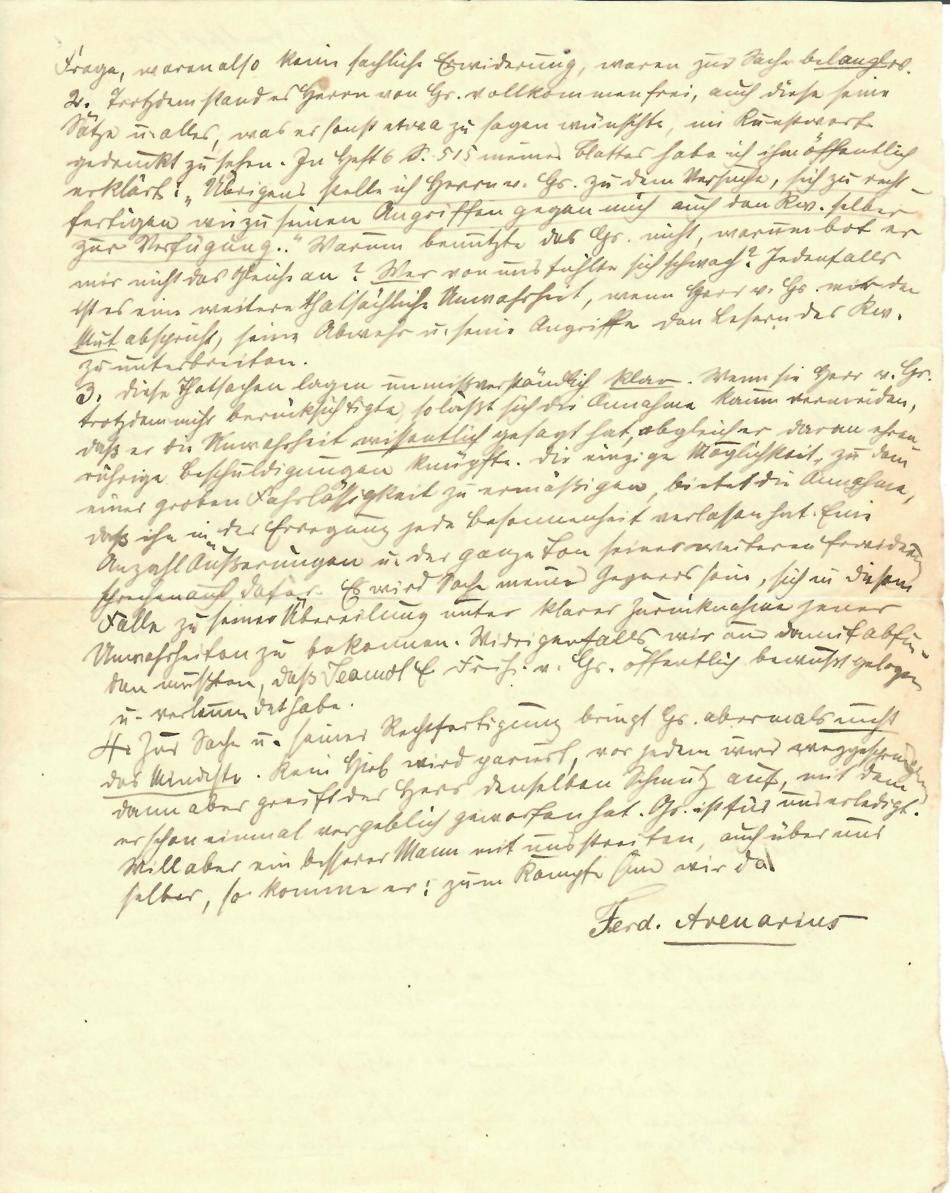 Frage, waren also keine sachliche Erwiderung, waren zur Sache belanglos.
2. Trotzdem stand es Herrn von Gr. vollkommen frei, auch diese seine
Sätze u. alles, was er sonst etwa zu sagen wünschte, im Kunstwart
gedruckt zu sehen. In Heft 6 S. 515 meines Blattes habe ich ihm öffentlich
erklärt: „Übrigens stelle ich Herrn v. Gr. zu dem Versuche, sich zu recht-
fertigen wie zu seinen Angriffen gegen mich auch den Kw. selber
zur Verfügung.." Warum benutzte das Gr. nicht, warum bot er
mir nicht das Gleiche an? Wer von uns fühlte sich schwach? Jedenfalls
ist es eine weitere thatsächliche Unwahrheit, wenn Herr v. Gr. mir den
Mut abspricht, seine Abwehr u. seine Angriffe den Lesern des Kw.
zu unterbreiten.
3. Diese Thatsachen lagen unmißverständlich klar. Wenn sie Herr v. Gr.
trotzdem nicht berücksichtigte, so läßt sich die Annahme kaum vermeiden,
daß er die Unwahrheit wissentlich gesagt hat, obgleich er daran ehren-
rührige Beschuldigungen knüpfte. Die einzige Möglichkeit, zu dem
einer groben Fahrlässigkeit zu ermäßigen, bietet die Annahme,
daß ihn in der Erregung jede Besonnenheit verlassen hat. Eine
Anzahl Äußerungen u. der ganze Ton seiner weiteren Erwiderung
sprechen auch dafür. Es wird Sache meines Gegners sein, sich in diesem
Falle zu seiner Übereilung unter klarer Zurücknahme jener
Unwahrheiten zu bekennen. Widrigenfalls wir uns damit abfin-
den müßten, daß Jeannot E Freih. v. Gr. öffentlich bewußt gelogen
u. verleumdet habe.
4. Zur Sache u. seiner Rechtfertigung bringt Gr. abermals nicht
das Mindeste. Kein Hieb wird pariert, vor jedem wird weggesprungen
dann aber greift der Herr denselben Schmutz auf, mit dem
er schon einmal vergeblich geworfen hat. Gr. ist für uns erledigt.
Will aber ein besserer Mann mit uns streiten, auch über uns
selber, so komme er: zum Kampfe sind wir da!
Ferd. Avenarius